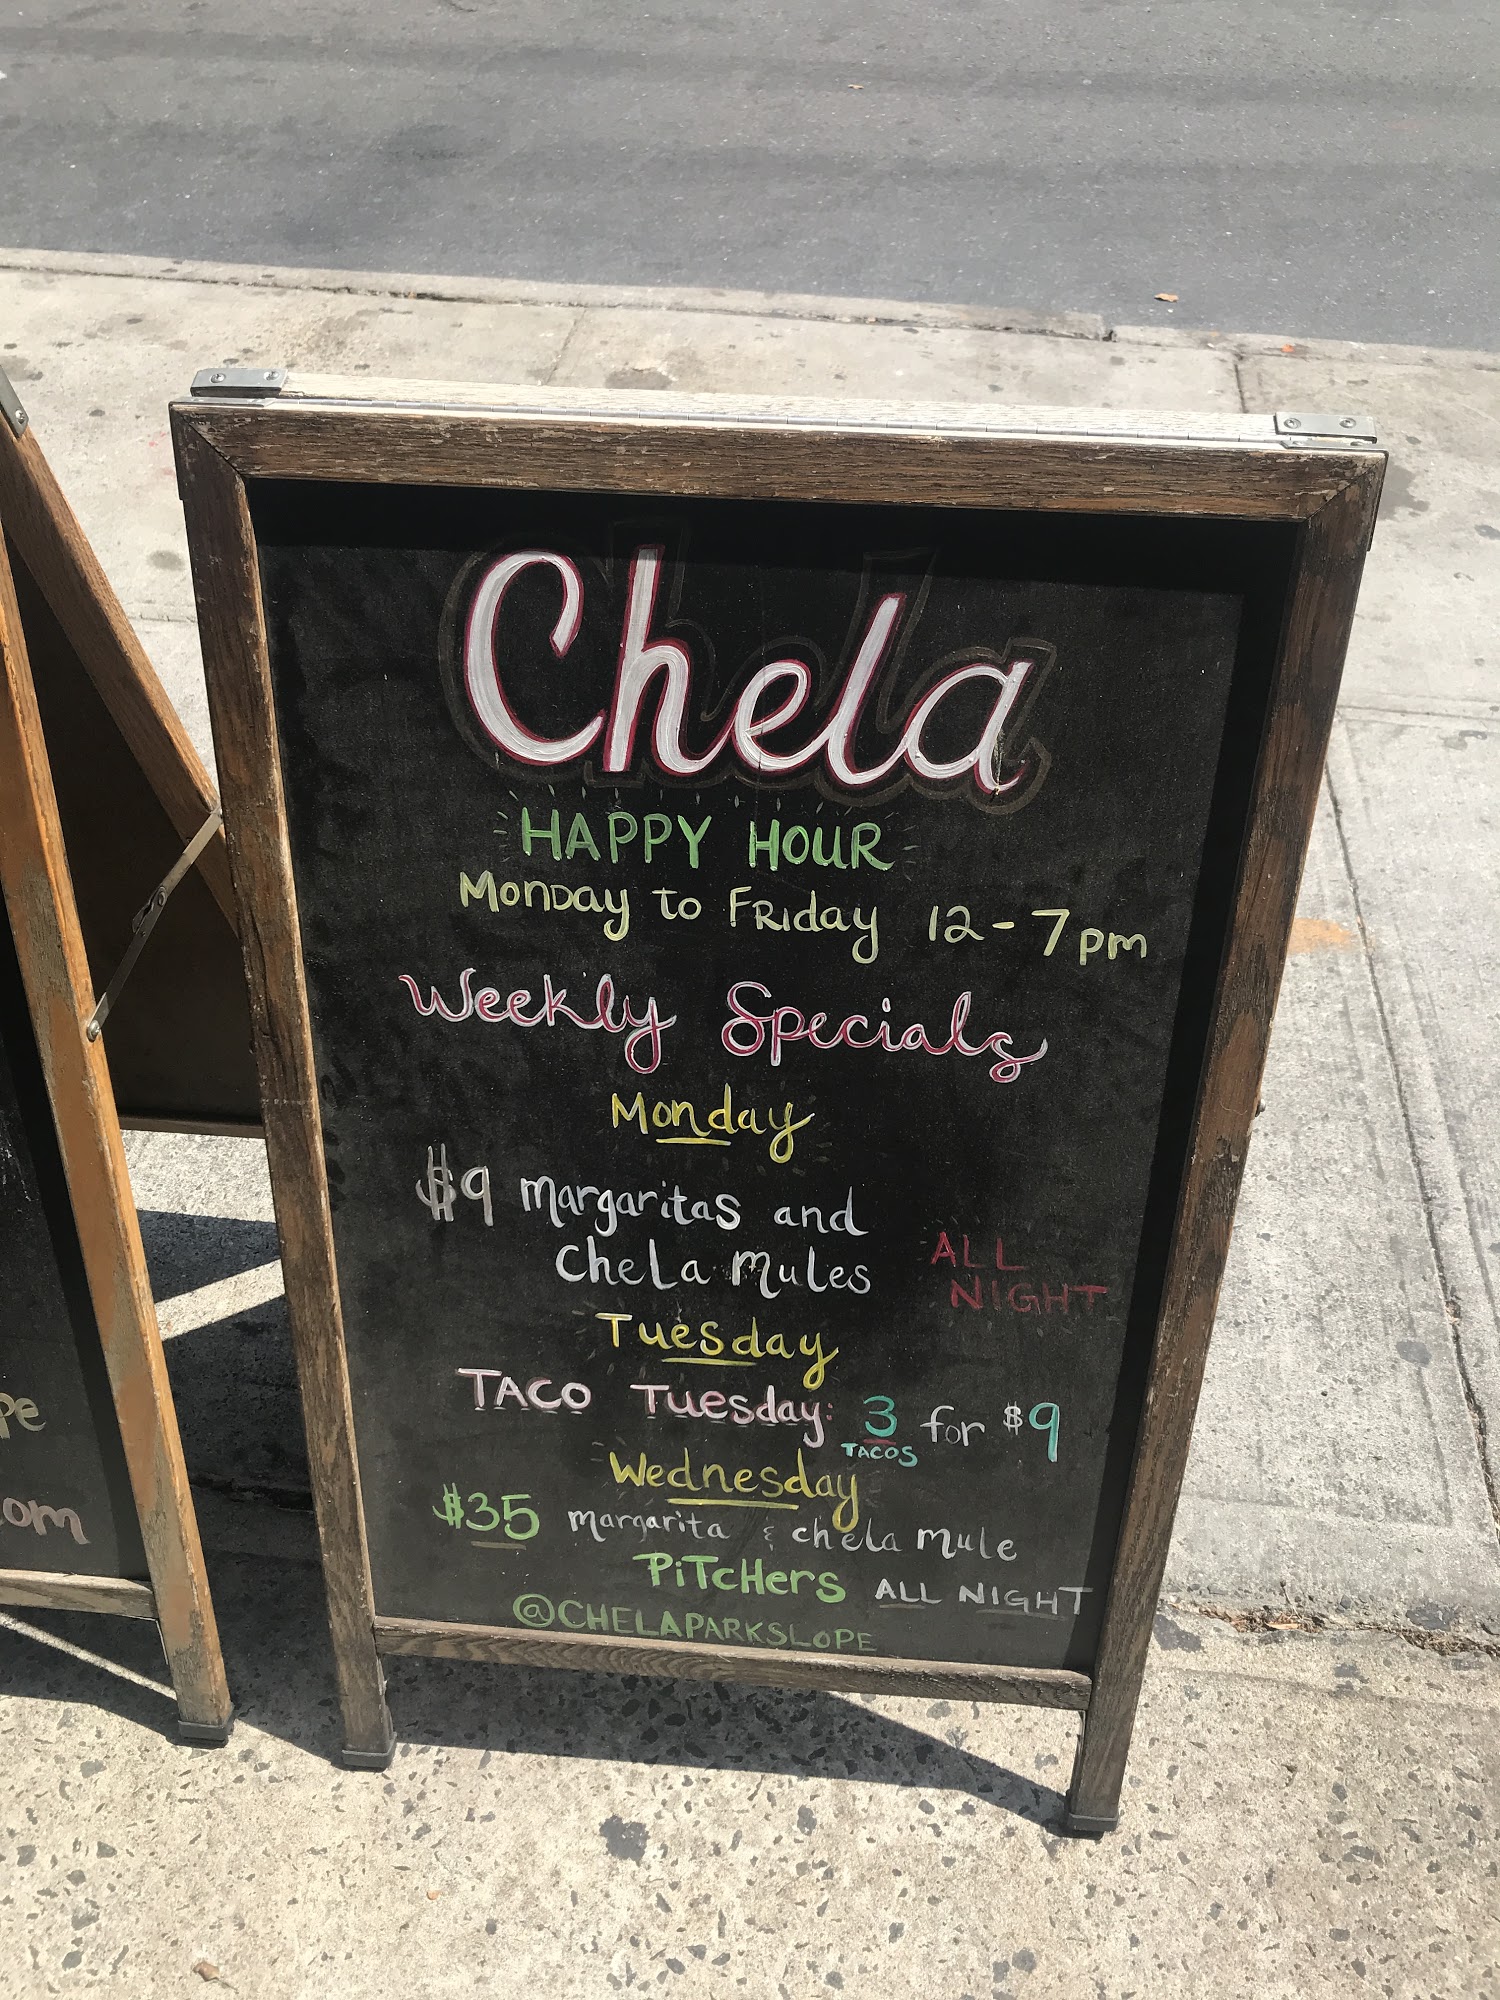 Chela
HAPPY HOUR
Monday to Friday 12-7pm
Weekly Specials
Monday
$9 margaritas and
Chela Mules
ALL
NIGHT
Tuesday
TACO Tuesday: 3 for $9
TACOS
Wednesday
$35 margarita & chela mule
PiTcHers ALL NIGHT
@CHELAPARKSLOPE